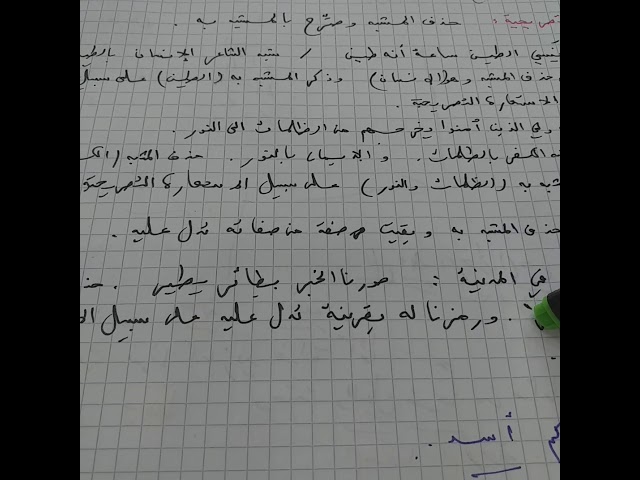 تصريحية : حذف المشبه وصرّح بالمشبه به .
نسي الطين ساعة أنه طين / شبه الشاعر الإنسان بالطين
حذف المشبه وهو (الإنسان) وذكر المشبه به (الطين) على سبيل
الاستعارة التصريحية .
ولي الذين آمنوا يخرجهم من الظلمات الى النور .
الكفر بالظلمات . والإيمان بالنور . حذف المشبه (الكفر
به (الظلمات والنور) على سبيل الاستعارة التصريحية
حذف المشبه به وبقيت صفة من صفاته تدل عليه .
في المدينة : صورنا الخبر بطائر يطير . حذ
. ورمزنا له بقرينة تدل عليه على سبيل ال
أسد .